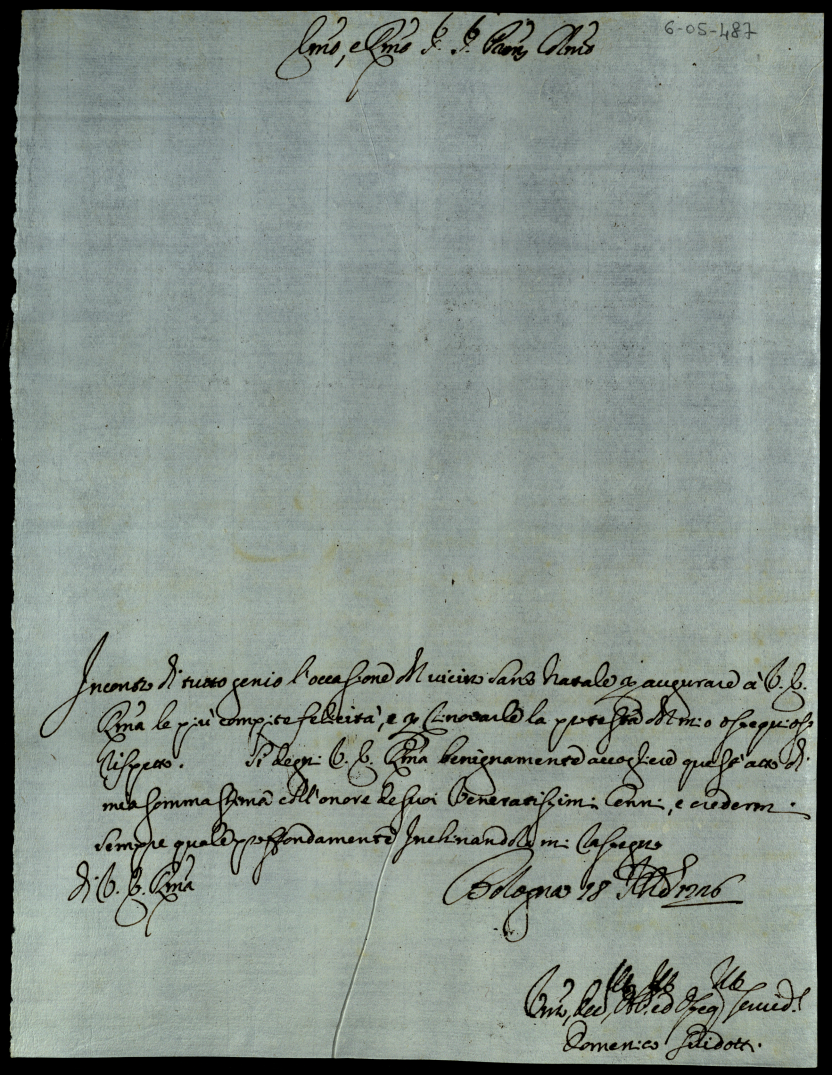 6-05-487
Ill.mo, e R.mo Sig. Sig. Pron Col.mo
Incontro di tutto genio l'occasione del vicino Santo Natale p augurare à V. S.
R.ma le più compite felicità, e p rinovarle la protesta del mio ossequioso
rispetto. Si degni V. S. R.ma benignamente accogliere quest'atto di
mia somma stima coll'onore de suoi Veneratissimi Cenni, e credermi
sempre quale proffondamente Inchinandole mi rasegno
di V. S. R.ma
Bologna 18 1716
Domenico Guidotti